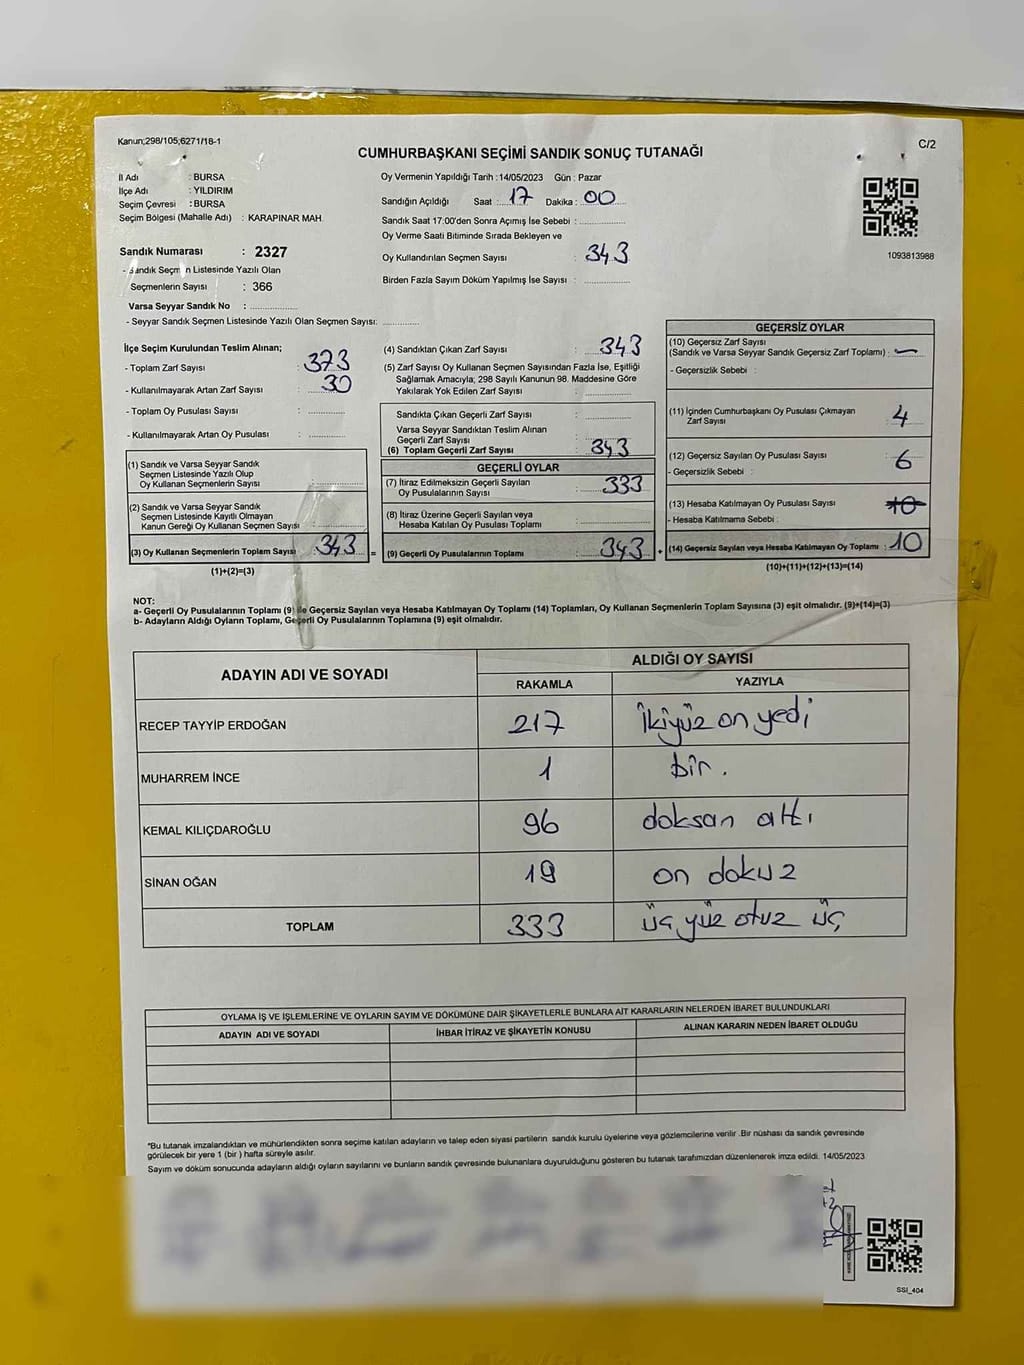 Kanun;298/105;6271/18-1
C/2
CUMHURBAŞKANI SEÇİMİ SANDIK SONUÇ TUTANAĞI
İl Adı : BURSA
İlçe Adı : YILDIRIM
Seçim Çevresi : BURSA
Seçim Bölgesi (Mahalle Adı) : KARAPINAR MAH.
Sandık Numarası : 2327
- Sandık Seçmen Listesinde Yazılı Olan
Seçmenlerin Sayısı : 366
Varsa Seyyar Sandık No : ...............
- Seyyar Sandık Seçmen Listesinde Yazılı Olan Seçmen Sayısı: ............
Oy Vermenin Yapıldığı Tarih :14/05/2023 Gün : Pazar
Sandığın Açıldığı Saat : 17 Dakika : 00
Sandık Saat 17:00'den Sonra Açımış İse Sebebi : ...............
Oy Verme Saati Bitiminde Sırada Bekleyen ve
Oy Kullandırılan Seçmen Sayısı : 343
Birden Fazla Sayım Döküm Yapılmış İse Sayısı : ...............
1093813988
İlçe Seçim Kurulundan Teslim Alınan;
- Toplam Zarf Sayısı : 373
- Kullanılmayarak Artan Zarf Sayısı : 30
- Toplam Oy Pusulası Sayısı : ............
- Kullanılmayarak Artan Oy Pusulası : ............
(1) Sandık ve Varsa Seyyar Sandık
Seçmen Listesinde Yazılı Olup
Oy Kullanan Seçmenlerin Sayısı : ...............
(2) Sandık ve Varsa Seyyar Sandık
Seçmen Listesinde Kayıtlı Olmayan
Kanun Gereği Oy Kullanan Seçmen Sayısı : ...............
(3) Oy Kullanan Seçmenlerin Toplam Sayısı : 343 =
(1)+(2)=(3)
(4) Sandıktan Çıkan Zarf Sayısı : 343
(5) Zarf Sayısı Oy Kullanan Seçmen Sayısından Fazla İse, Eşitliği
Sağlamak Amacıyla; 298 Sayılı Kanunun 98. Maddesine Göre
Yakılarak Yok Edilen Zarf Sayısı : ...............
Sandıkta Çıkan Geçerli Zarf Sayısı : ...............
Varsa Seyyar Sandıktan Teslim Alınan
Geçerli Zarf Sayısı : ...............
(6) Toplam Geçerli Zarf Sayısı : 343
GEÇERLİ OYLAR
(7) İtiraz Edilmeksizin Geçerli Sayılan
Oy Pusulalarının Sayısı : 333
(8) İtiraz Üzerine Geçerli Sayılan veya
Hesaba Katılan Oy Pusulası Toplamı : ...............
(9) Geçerli Oy Pusulalarının Toplamı : 343 +
GEÇERSİZ OYLAR
(10) Geçersiz Zarf Sayısı
(Sandık ve Varsa Seyyar Sandık Geçersiz Zarf Toplamı) : —
- Geçersizlik Sebebi :
(11) İçinden Cumhurbaşkanı Oy Pusulası Çıkmayan
Zarf Sayısı : 4
(12) Geçersiz Sayılan Oy Pusulası Sayısı : 6
- Geçersizlik Sebebi :
(13) Hesaba Katılmayan Oy Pusulası Sayısı : 10
- Hesaba Katılmama Sebebi :
(14) Geçersiz Sayılan veya Hesaba Katılmayan Oy Toplamı : 10
(10)+(11)+(12)+(13)=(14)
NOT:
a- Geçerli Oy Pusulalarının Toplamı (9) ile Geçersiz Sayılan veya Hesaba Katılmayan Oy Toplamı (14) Toplamları, Oy Kullanan Seçmenlerin Toplam Sayısına (3) eşit olmalıdır. (9)+(14)=(3)
b- Adayların Aldığı Oyların Toplamı, Geçerli Oy Pusulalarının Toplamına (9) eşit olmalıdır.
ADAYIN ADI VE SOYADI ALDIĞI OY SAYISI
RAKAMLA YAZIYLA
RECEP TAYYİP ERDOĞAN 217 ikiyüz on yedi
MUHARREM İNCE 1 bir.
KEMAL KILIÇDAROĞLU 96 doksan altı
SİNAN OĞAN 19 on dokuz
TOPLAM 333 üç yüz otuz üç
OYLAMA İŞ VE İŞLEMLERİNE VE OYLARIN SAYIM VE DÖKÜMÜNE DAİR ŞİKAYETLERLE BUNLARA AİT KARARLARIN NELERDEN İBARET BULUNDUKLARI
ADAYIN ADI VE SOYADI İHBAR İTİRAZ VE ŞİKAYETİN KONUSU ALINAN KARARIN NEDEN İBARET OLDUĞU
*Bu tutanak imzalandıktan ve mühürlendikten sonra seçime katılan adayların ve talep eden siyasi partilerin sandık kurulu üyelerine veya gözlemcilerine verilir .Bir nüshası da sandık çevresinde
görülecek bir yere 1 (bir ) hafta süreyle asılır.
Sayım ve döküm sonucunda adayların aldığı oyların sayılarını ve bunların sandık çevresinde bulunanlara duyurulduğunu gösteren bu tutanak tarafımızdan düzenlenerek imza edildi. 14/05/2023
SSI_404